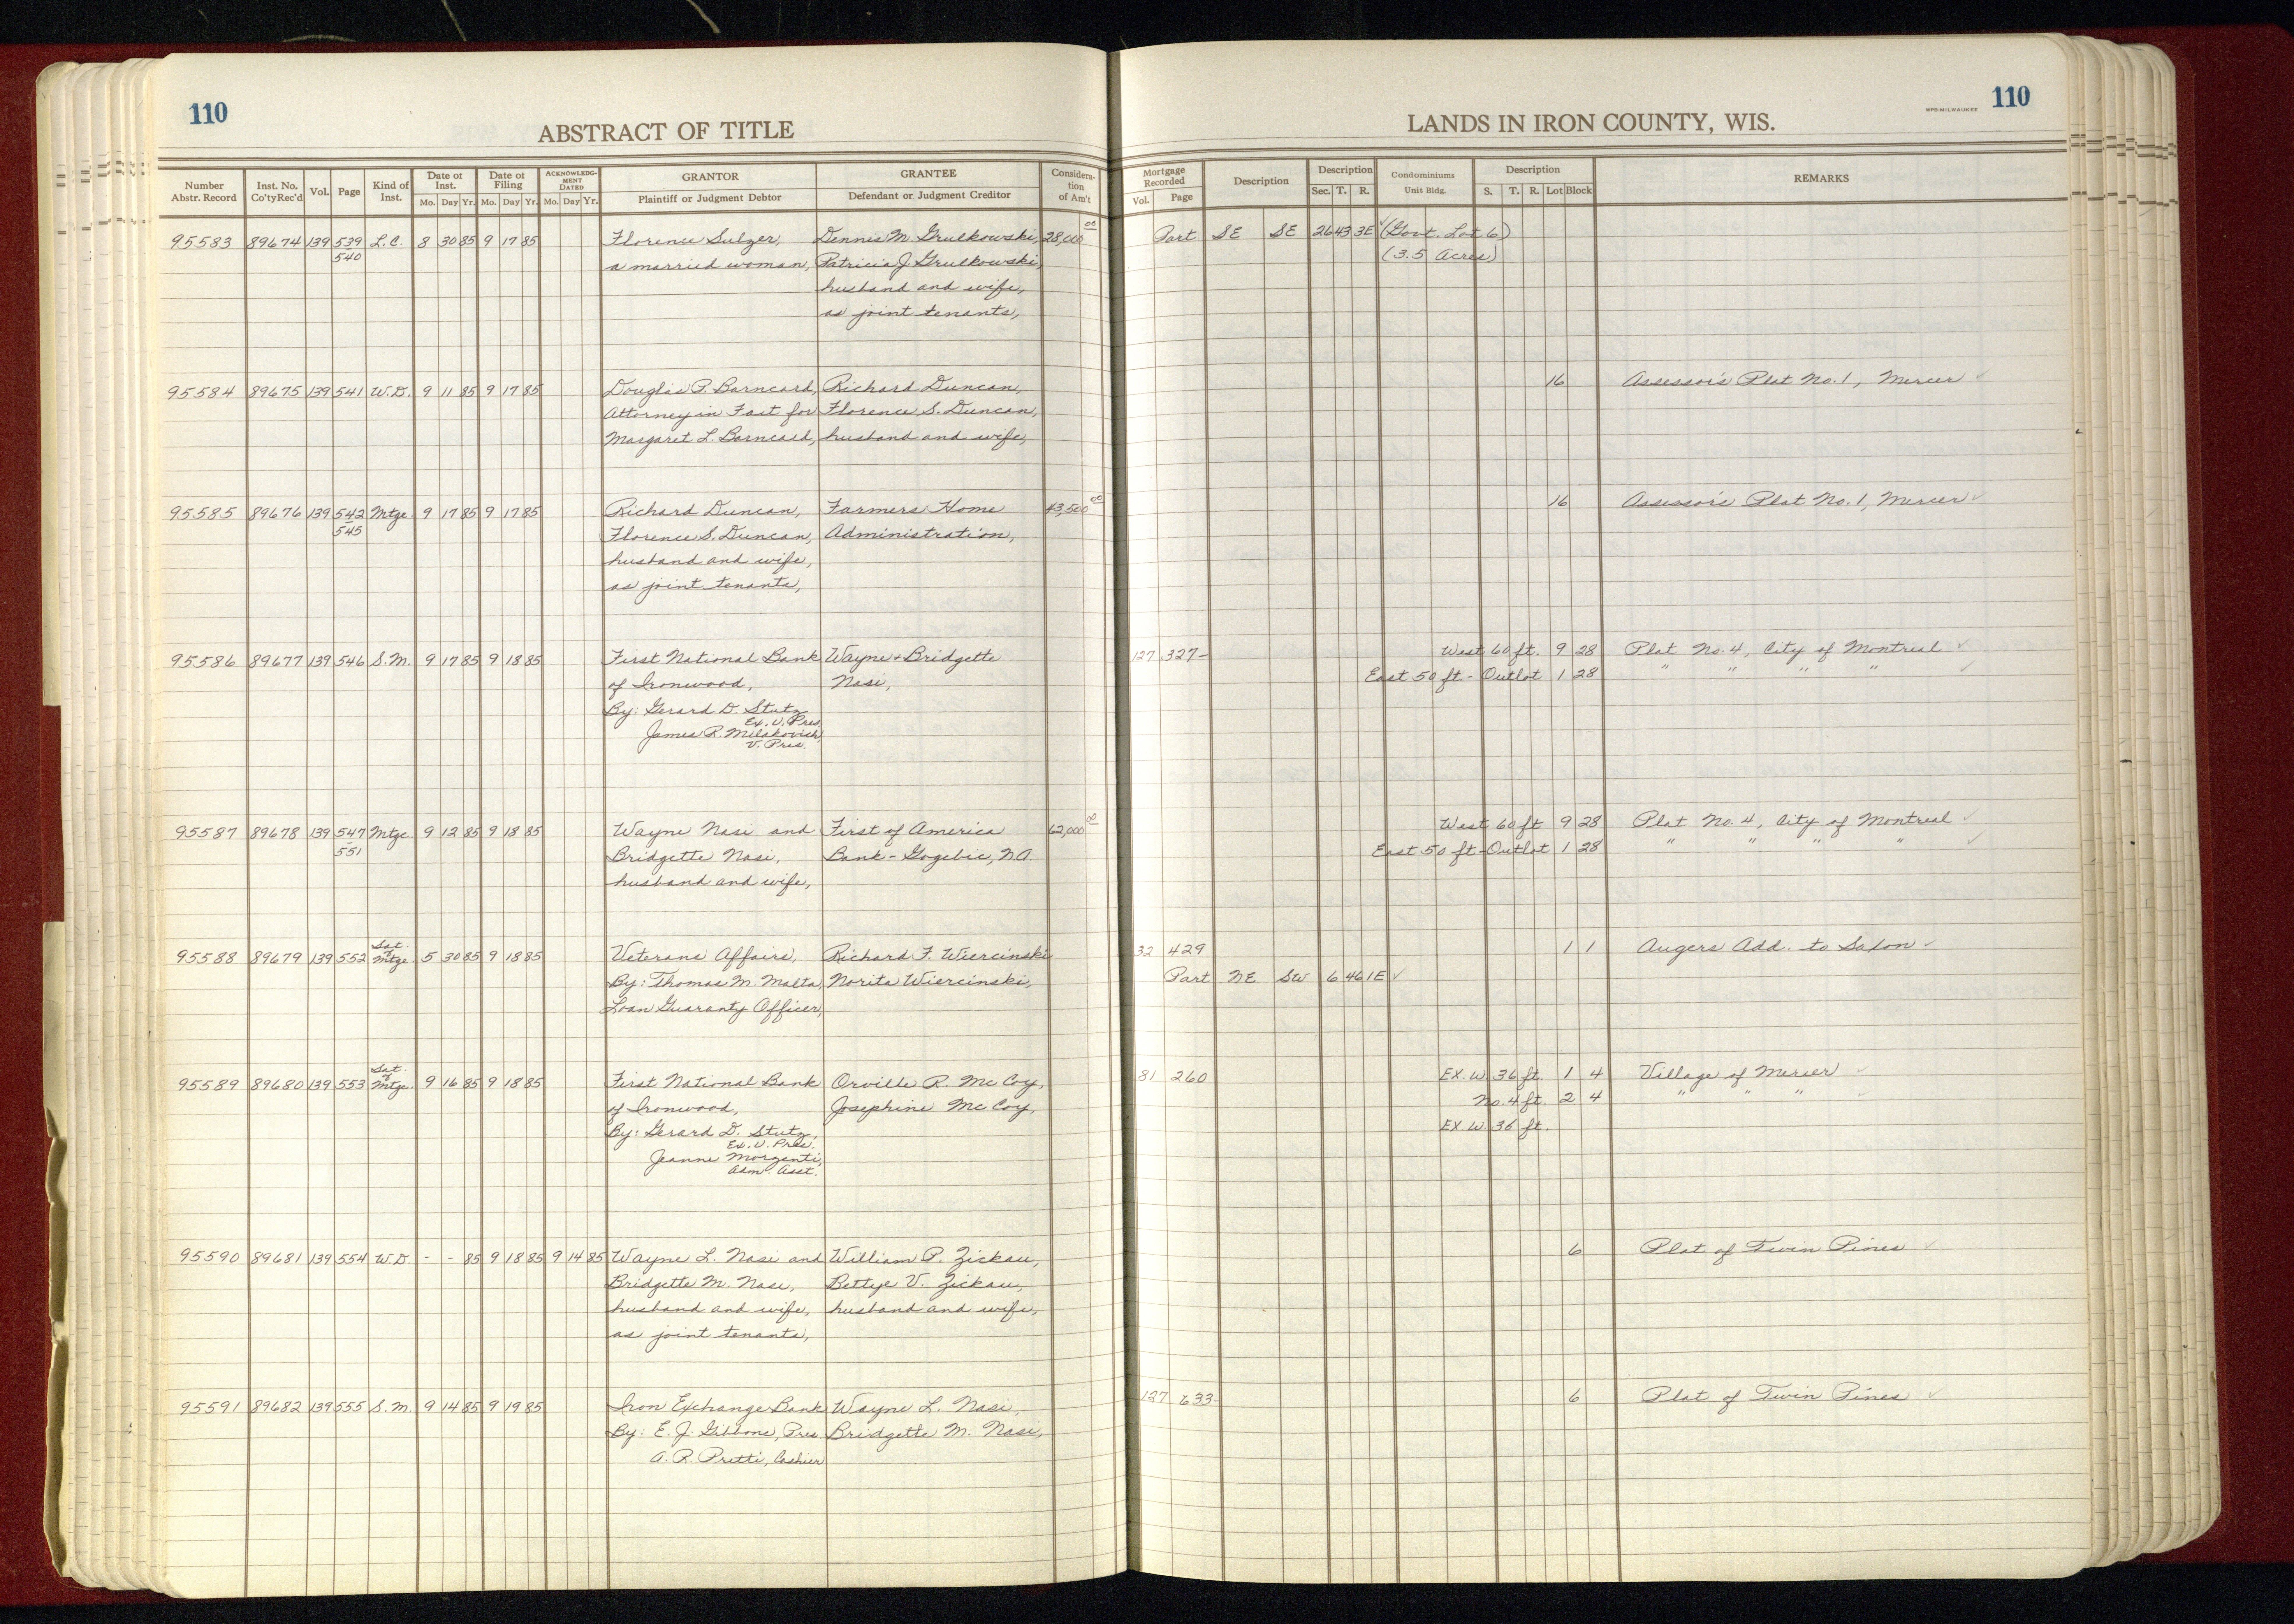 110
ABSTRACT OF TITLE
LANDS IN IRON COUNTY, WIS.
WPB-MILWAUKEE
110
Number Abstr. Record | Inst. No. Co'ty Rec'd | Vol. | Page | Kind of Inst. | Date of Inst. Mo. Day Yr. | Date of Filing Mo. Day Yr. | ACKNOWLEDGMENT DATED Mo. Day Yr. | GRANTOR Plaintiff or Judgment Debtor | GRANTEE Defendant or Judgment Creditor | Consideration of Am't | Mortgage Recorded Vol. Page | Description | Description Sec. T. R. | Condominiums Unit Bldg. | Description S. T. R. Lot Block | REMARKS
95583 89674 139 539 L.C. 8 30 85 9 17 85 Florence Sulzer, Dennis M. Grulkowski, 28,000 00 Part SE SE 26 43 3E ✓ (Govt. Lot 6)
540 a married woman, Patricia J. Grulkowski, (3.5 Acres)
husband and wife,
as joint tenants,
95584 89675 139 541 W.D. 9 11 85 9 17 85 Douglas P. Barncard, Richard Duncan, 16 Assessor's Plat No. 1, Mercer ✓
Attorney in Fact for Florence S. Duncan,
Margaret L. Barncard, husband and wife,
95585 89676 139 542 Mtge. 9 17 85 9 17 85 Richard Duncan, Farmers Home 43,500 00 16 Assessor's Plat No. 1, Mercer ✓
545 Florence S. Duncan, Administration,
husband and wife,
as joint tenants,
95586 89677 139 546 S.M. 9 17 85 9 18 85 First National Bank Wayne & Bridgette 127 327- West 60 ft. 9 28 Plat No. 4, City of Montreal ✓
of Ironwood, Nasi, East 50 ft - Outlot 1 28 " " " " ✓
By: Gerard D. Stutz
Ex. V. Pres.
James R. Milakovich,
V. Pres.
95587 89678 139 547 Mtge. 9 12 85 9 18 85 Wayne Nasi and First of America 62,000 00 West 60 ft 9 28 Plat No. 4, City of Montreal ✓
- 551 Bridgette Nasi, Bank - Gogebic, N.A. East 50 ft - Outlot 1 28 " " " " ✓
husband and wife,
95588 89679 139 552 Sat. of Mtge. 5 30 85 9 18 85 Veterans Affairs, Richard F. Wiercinski 32 429 1 1 Augers Add. to Saxon ✓
By: Thomas M. Malta, Norita Wiercinski, Part NE SW 6 46 1E ✓
Loan Guaranty Officer,
95589 89680 139 553 Sat. of Mtge. 9 16 85 9 18 85 First National Bank Orville R. McCoy, 81 260 EX. W. 36 ft. 1 4 Village of Mercer ✓
of Ironwood, Josephine McCoy, No. 4 ft. 2 4 " " " ✓
By: Gerard D. Stutz, EX W. 36 ft.
Ex. V. Pres.
Jeanne Morzenti,
Adm. Asst.
95590 89681 139 554 W.D. - - 85 9 18 85 9 14 85 Wayne L. Nasi and William P. Zickau, 6 Plat of Twin Pines ✓
Bridgette M. Nasi, Bettye V. Zickau,
husband and wife, husband and wife,
as joint tenants,
95591 89682 139 555 S.M. 9 14 85 9 19 85 Iron Exchange Bank Wayne L. Nasi, 127 633- 6 Plat of Twin Pines ✓
By: E. J. Gibbons, Pres. Bridgette M. Nasi,
A. R. Pretti, Cashier